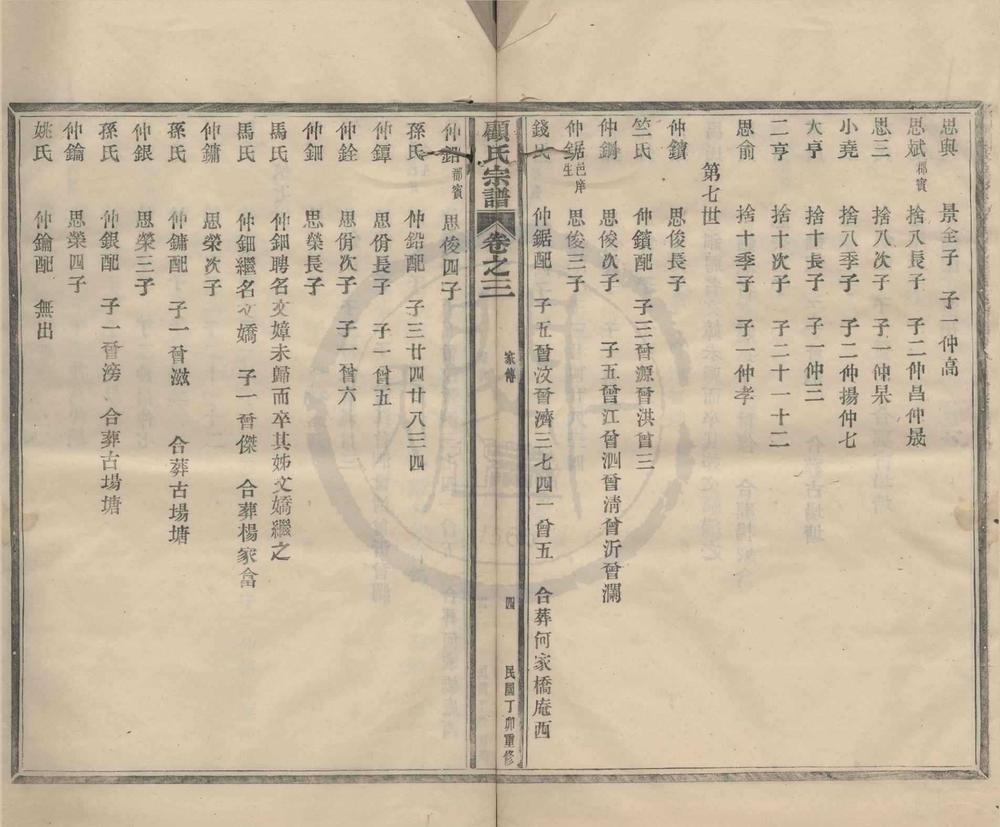 思與 景全子 子一仲高
思斌郡賓 捨八長子 子二仲昌仲晟
思三 捨八次子 子一仲杲
小堯 捨八季子 子二仲揚仲七
大亨 捨十長子 子一仲三
二亨 捨十次子 子二十一十二
思俞 捨十季子 子一仲孝
第七世
仲鑌 思俊長子
竺氏 仲鑌配 子三曾源曾洪曾三
仲鋼 思俊次子 子五曾江曾泗曾清曾沂曾瀾
仲鋸邑庠生 思俊三子
錢氏 仲鋸配 子五曾汶曾濟三七四一曾五 合葬何家橋庵西
顧氏宗譜 卷之三 家傳 四 民國丁卯重修
仲鉛郡賓 思俊四子
孫氏 仲鉛配 子三廿四廿八三四
仲鐔 思佾長子 子一曾五
仲銓 思佾次子 子一曾六
仲鈿 思榮長子
馬氏 仲鈿聘名文嫜未歸而卒其姊文嬌繼之
馬氏 仲鈿繼名文嬌 子一曾傑 合葬楊家畣
仲鏞 思榮次子
孫氏 仲鏞配 子一曾滋 合葬古場塘
仲銀 思榮三子
孫氏 仲銀配 子一曾滂 合葬古場塘
仲鑰 思榮四子
姚氏 仲鑰配 無出